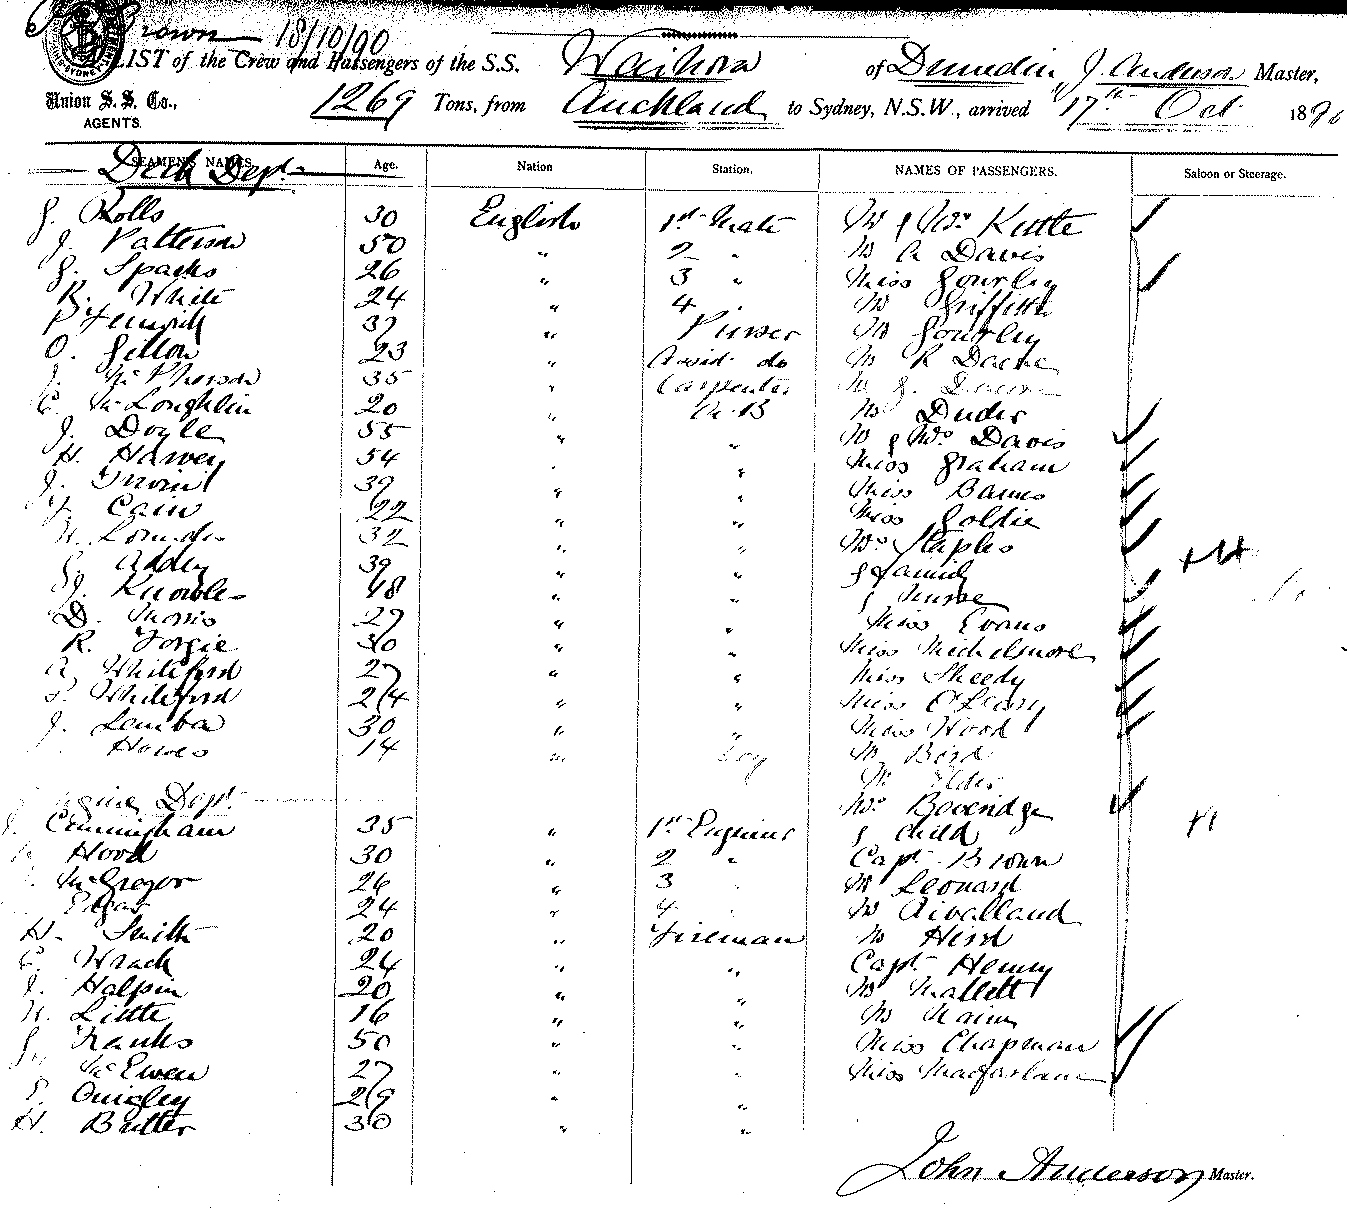 Brown 18/10/90
LIST of the Crew and Passengers of the S.S. Waihora of Dunedin J. Anderson Master,
Union S. S. Co., 1269 Tons, from Auckland to Sydney, N.S.W., arrived 17th Oct 1890
AGENTS.
SEAMEN'S NAMES. Age. Nation Station. NAMES OF PASSENGERS. Saloon or Steerage.
Deck Dept.
Rolls 30 English 1st Mate Mr & Mrs Kettle
J. Patterson 50 " 2 " Mr A Davis
Sparks 26 " 3 " Miss Gourley
R. White 24 " 4 " Mr Griffith
P Fenwick 37 " Purser Mr Gourley
O. Gillon 23 " Assist do Mr R Dacre
J. McPherson 35 " Carpenter Mr
C. McLoughlin 20 " A.B Mr Duder
J. Doyle 55 " " Mr & Mrs Davis
H. Harvey 54 " " Miss Graham
J. Irwin 39 " " Miss Barnes
Cain 22 " " Miss Goldie
32 " " Mrs Staples
39 " " & family
Knowles 48 " " & Nurse
D. Morris 27 " " Miss Evans
R. Forgie 30 " " Miss Michelmore
A Whiteford 27 " " Miss Sheedy
Whiteford 24 " " Miss O'Leary
J. 30 " " Miss Hood
Howes 14 " Boy Mr Bird
Mr Elder
Engine Dept. Mrs Beveridge
Cunningham 35 " 1st Engineer & child
Hood 30 " 2 " Capt. Brown
McGregor 26 " 3 " Mr Leonard
Edgar 24 " 4 " Mr Aivalland
H. Smith 20 " Fireman Mr Hird
C. Wrack 24 " " Capt Henry
J. Halpin 20 " " Mr Mallett
Little 16 " " Mr Nairn
Franks 50 " " Miss Chapman
McEwen 27 " " Miss Macfarlane
Quigley 29 " "
H. Butler 30 " "
John Anderson Master.